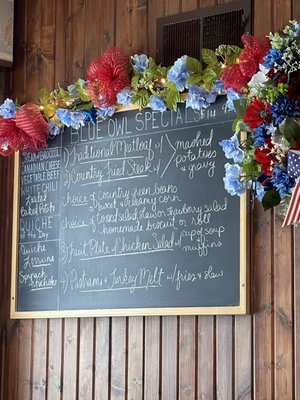 BLUE OWL SPECIALS
BROCCOLI
CANADIAN CHEESE
VEGETABLE BEEF
WHITE CHILI
Loaded
Baked Potato
QUICHE
of the DAY
Quiche
Lorraine
Spinach
1) Traditional Meatloaf w/ mashed
potatoes
& gravy
2) Country Fried Steak w/
choice of Country green beans
sweet & creamy corn
choice of tossed salad or strawberry salad
homemade biscuit or roll
3) Fruit Plate w/ Chicken Salad w/ cup of soup
& muffins
4) Pastrami & Turkey Melt w/ fries & slaw